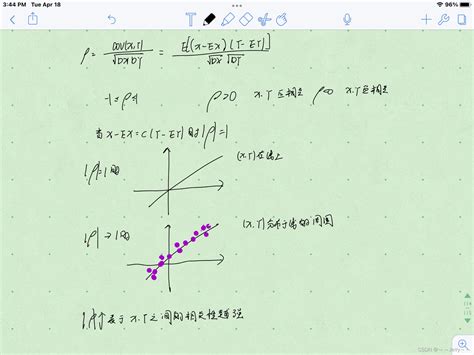 3:44 PM Tue Apr 18 96%
ρ = cov(X,Y) / √DX√DY = E[(X-EX)(Y-EY)] / √DX √DY
-1≤ρ≤1 ρ>0 X.Y 正相关 ρ<0 X.Y 负相关
当 X-EX=C(Y-EY)时 |ρ|=1
|ρ|=1时 (X,Y)在线上
|ρ|→1时 (X,Y)分布于线的周围
|ρ|↑表示 X.Y之间的相关性越强
114
115